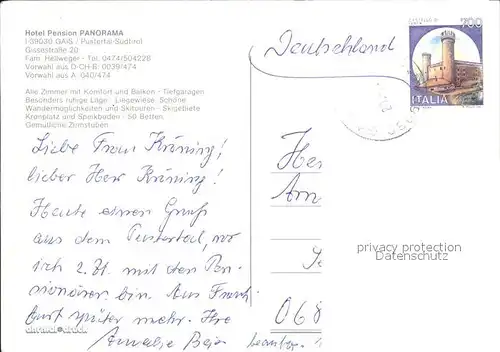 Hotel Pension PANORAMA
I-39030 GAIS / Pustertal-Südtirol
Gissestraße 20
Fam. Hellweger - Tel. 0474/504228
Vorwahl aus D-CH-B: 0039/474
Vorwahl aus A 040/474
Alle Zimmer mit Komfort und Balkon - Tiefgaragen
Besonders ruhige Lage Liegewiese. Schöne
Wandermöglichkeiten und Skitouren - Skigebiete
Kronplatz und Speikboden - 50 Betten.
Gemütliche Zirmstuben
Deutschland
700
ITALIA
Liebe Frau Krüning!
lieber Herr Krüning!
Heute einen Gruß
aus dem Pustertal, wo
ich z. Zt. mit den Pen-
sionären bin. Aus Frank-
furt später mehr. Ihre
Amalie
068
privacy protection
Datenschutz